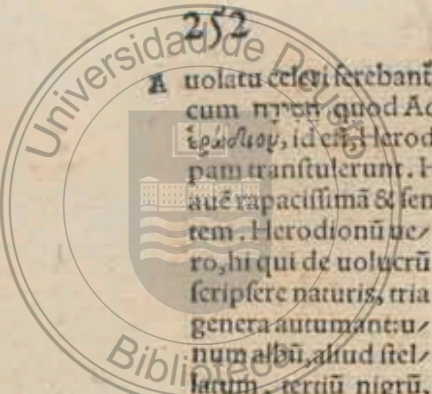 252
Universidad de Deusto
A uolatu celeri ferebant
cum חסידה quod Aq
ἐρωδιου, id est, Herod
pam transtulerunt. H
auē rapacissimā & sen
tem. Herodionū ue⸗
ro, hi qui de uolucrū
scripsere naturis, tria
genera autumant: u⸗
num albū, aliud stel⸗
latum, tertiū nigrū,